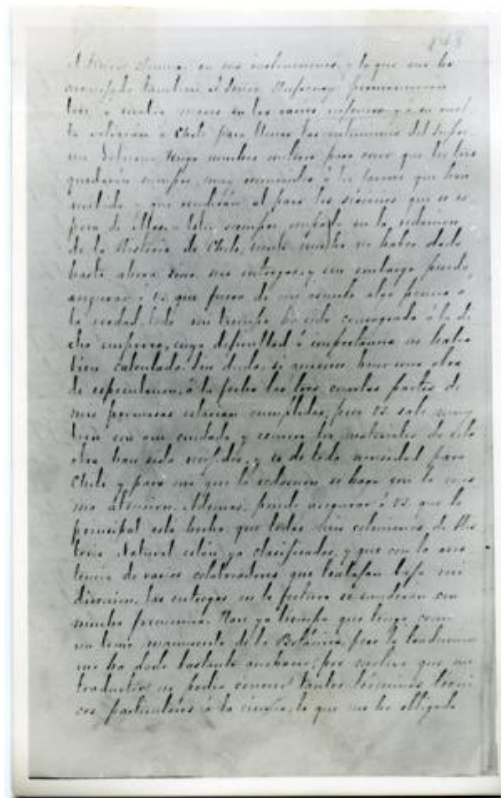 el Señor en sus instrucciones, y lo que me ha
aconsejado tambien el Señor permanecieran
tres o cuatro meses en los
volverian a Chile para llenar las del Supre
mo Gobierno. Tengo muchos motivos para creer que los tres
quedarán siempre muy reconocidos á los favores que han
recibido y que rendirán al pais los servicios que se es
pera de ellos. Estoy siempre ocupado en la redaccion
de la Historia de Chile, siento mucho no haber dado
hasta ahora sino seis entregas, y sin embargo puedo
asegurar á VS. que fuera de mi
la Sociedad, todo mi tiempo ha sido consagrado á la di
cha empresa, cuya dificultad é importancia no habia
bien calculado. Sin duda, si quisiera hacer una obra
de especulacion, á la fecha las tres cuartas partes de
mis promesas estarian cumplidas, pero VS. sabe muy
bien con que cuidado y los materiales de esta
obra han sido y es de toda necesidad para
Chile y para mi que la redaccion se haga con la mis
ma atencion. Ademas, puedo asegurar á VS. que lo
principal está hecho, que todas mis colecciones de His
toria Natural están ya clasificadas, y que con la asis
tencia de varios colaboradores que trabajan bajo mi
direccion, las entregas en lo futuro se sucederan con
mucha frecuencia. Hace ya tiempo que tengo
un tomo manuscrito de la Botánica, pero la traduccion
me ha dado bastante por motivo que mi
traductor no podia conocer tantos términos técni
cos particulares á la ciencia, lo que me ha obligado